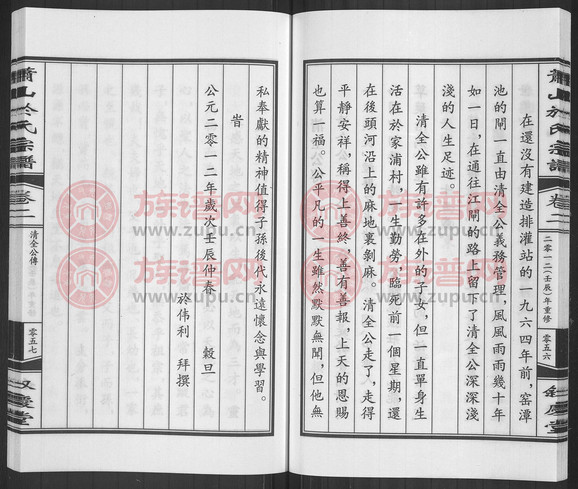 蕭山於氏宗譜
卷二
二零一二(壬辰)年重修
零五六
在還沒有建造排灌站的一九六四年前，窑潭
池的閘一直由清全公義務管理，風風雨雨幾十年
如一日，在通往江閘的路上留下了清全公深深淺
淺的人生足迹。
清全公雖有許多在外的子女，但一直單身生
活在於家浦村，一生勤勞，臨死前一個星期，還
在後頭河沿上的麻地裏剝麻。清全公走了，走得
平靜安祥，稱得上善終，善有善報，上天的恩賜
也算一福。公平凡的一生雖然默默無聞，但他無
私奉獻的精神值得子孫後代永遠懷念與學習。
旹
公元二零一二年歲次壬辰仲春 穀旦
於伟利 拜撰
蕭山於氏宗譜
卷二
清全公傳
零五七
族谱网
www.zupu.cn
族谱网
www.zupu.cn
族谱网
www.zupu.cn
族谱网
www.zupu.cn